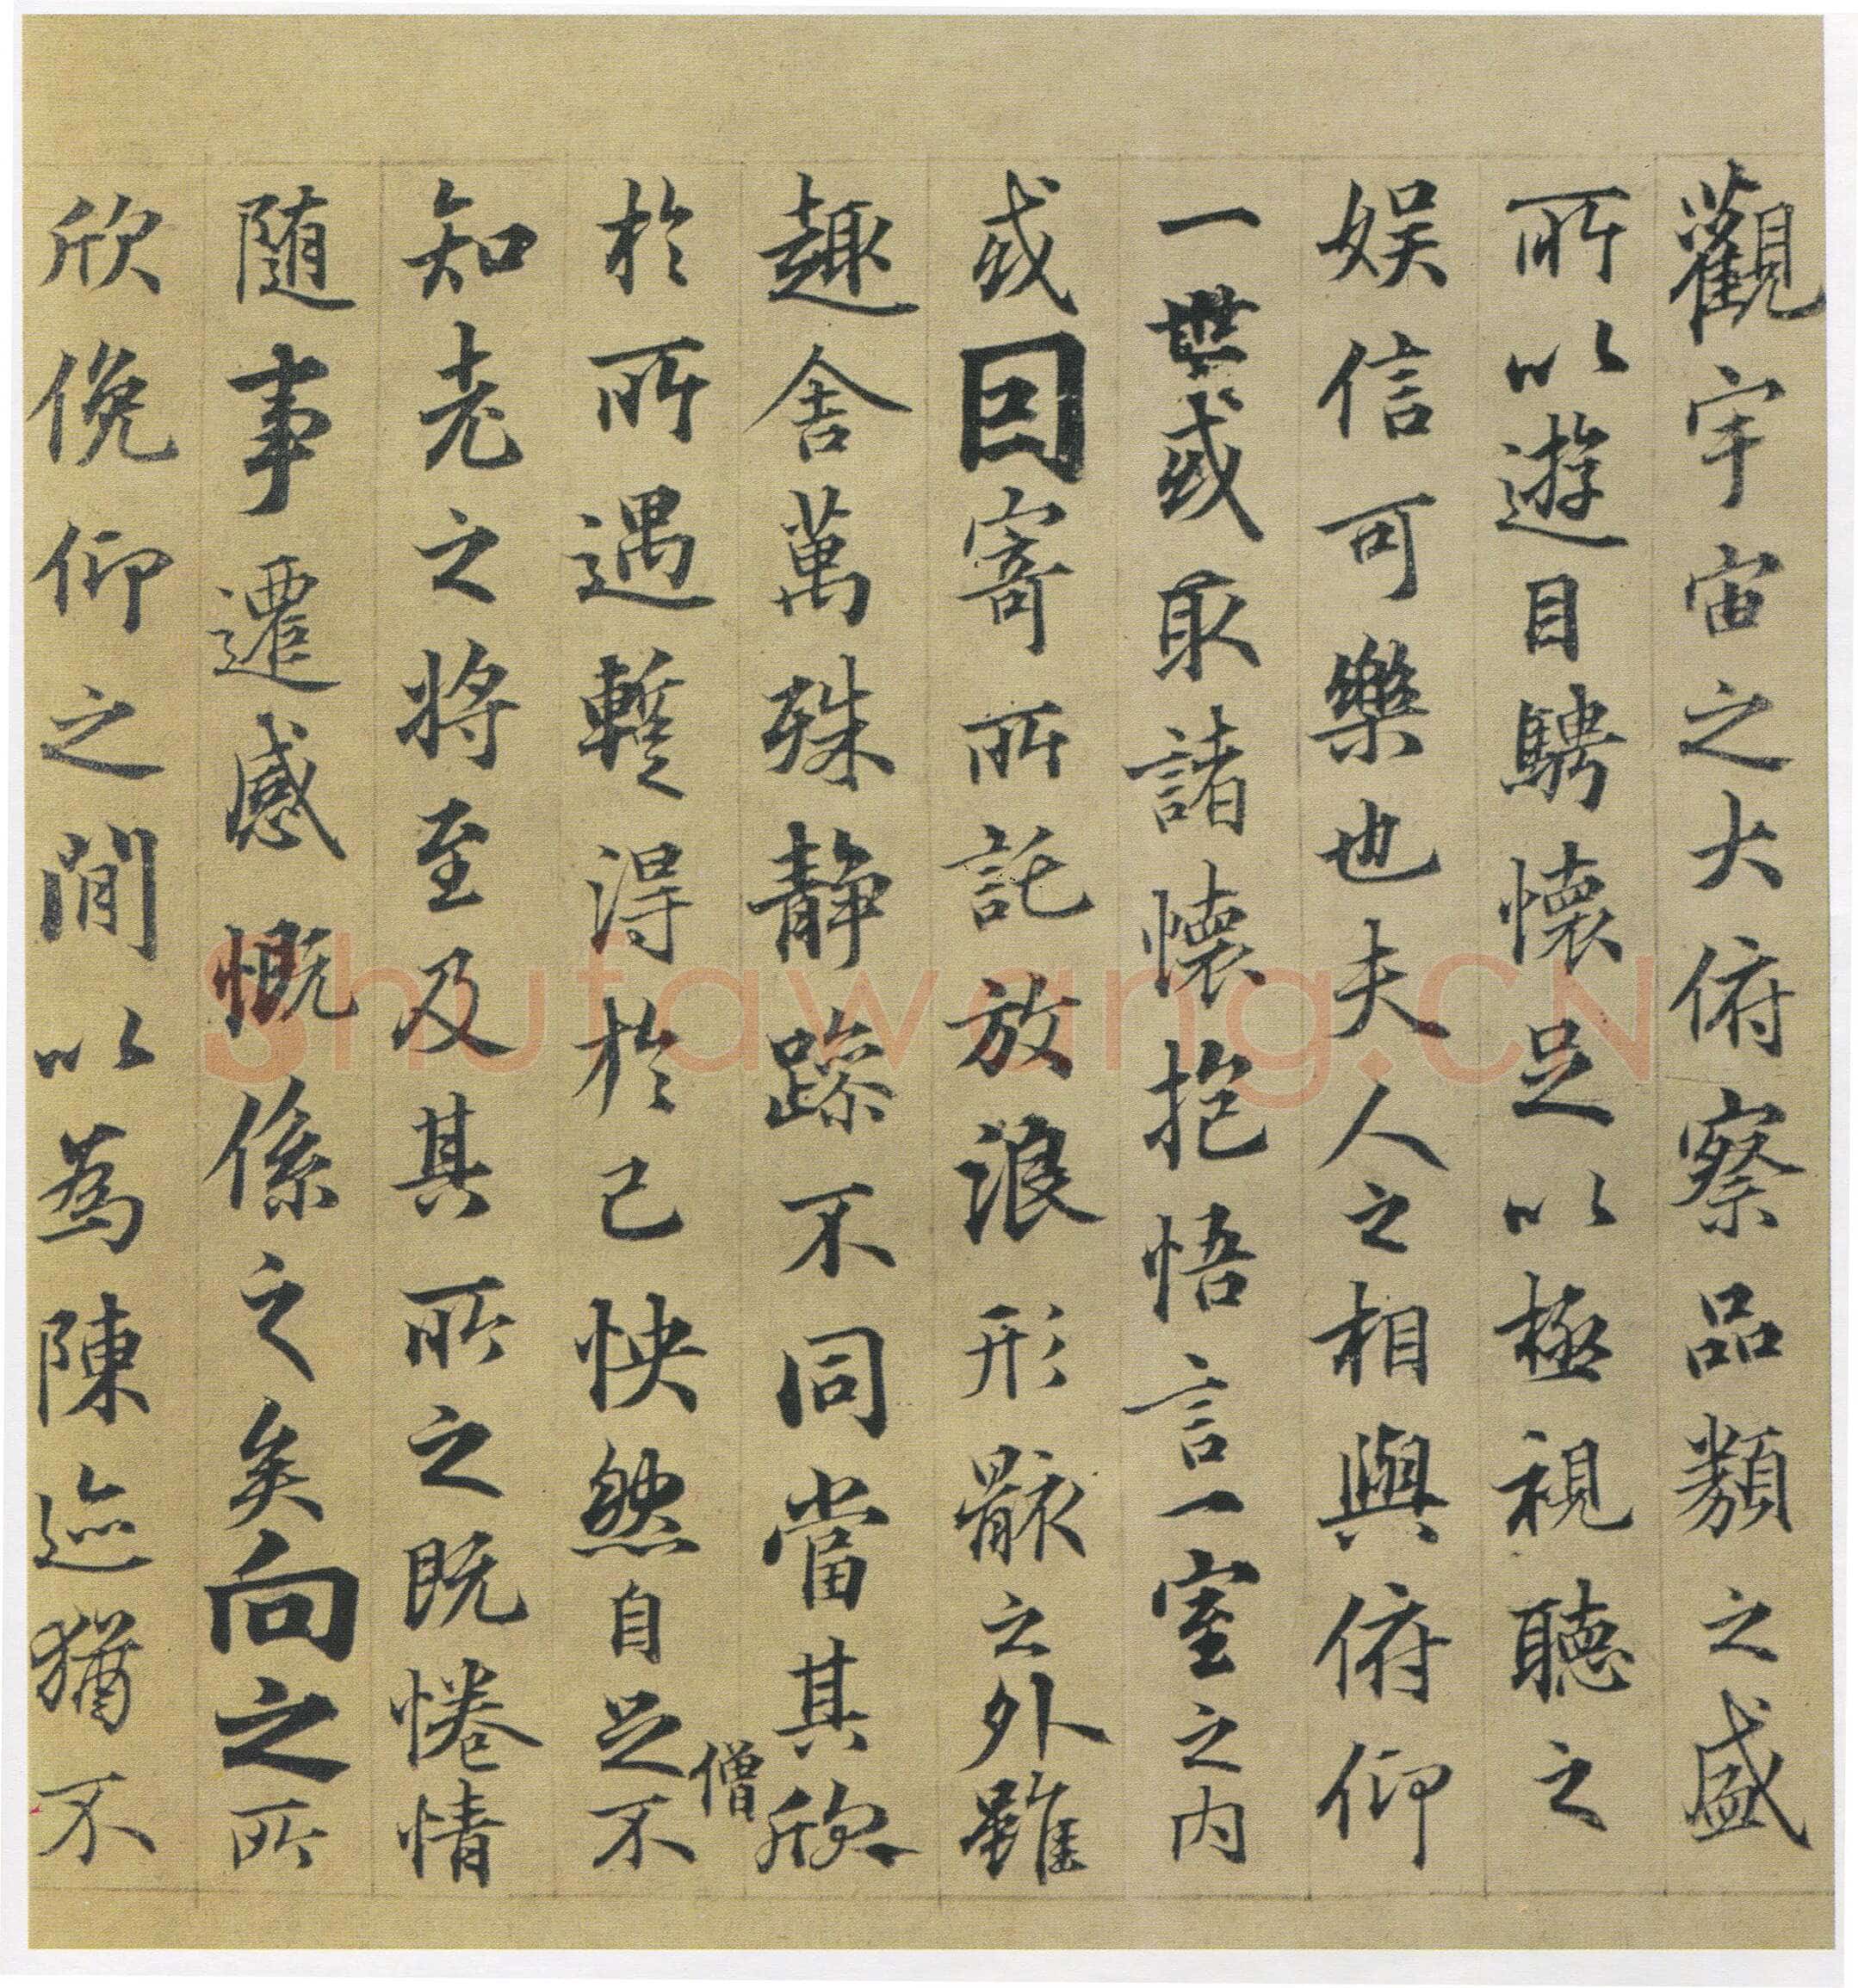 觀宇宙之大俯察品類之盛
所以遊目騁懷足以極視聽之
娛信可樂也夫人之相與俯仰
一世或取諸懷抱悟言一室之内
或因寄所託放浪形骸之外雖
趣舍萬殊静躁不同當其欣
僧
於所遇暫得於己怏然自足不
知老之將至及其所之既惓情
随事遷感慨係之矣向之所
欣俛仰之閒以為陳迹猶不
Shufawang.CN